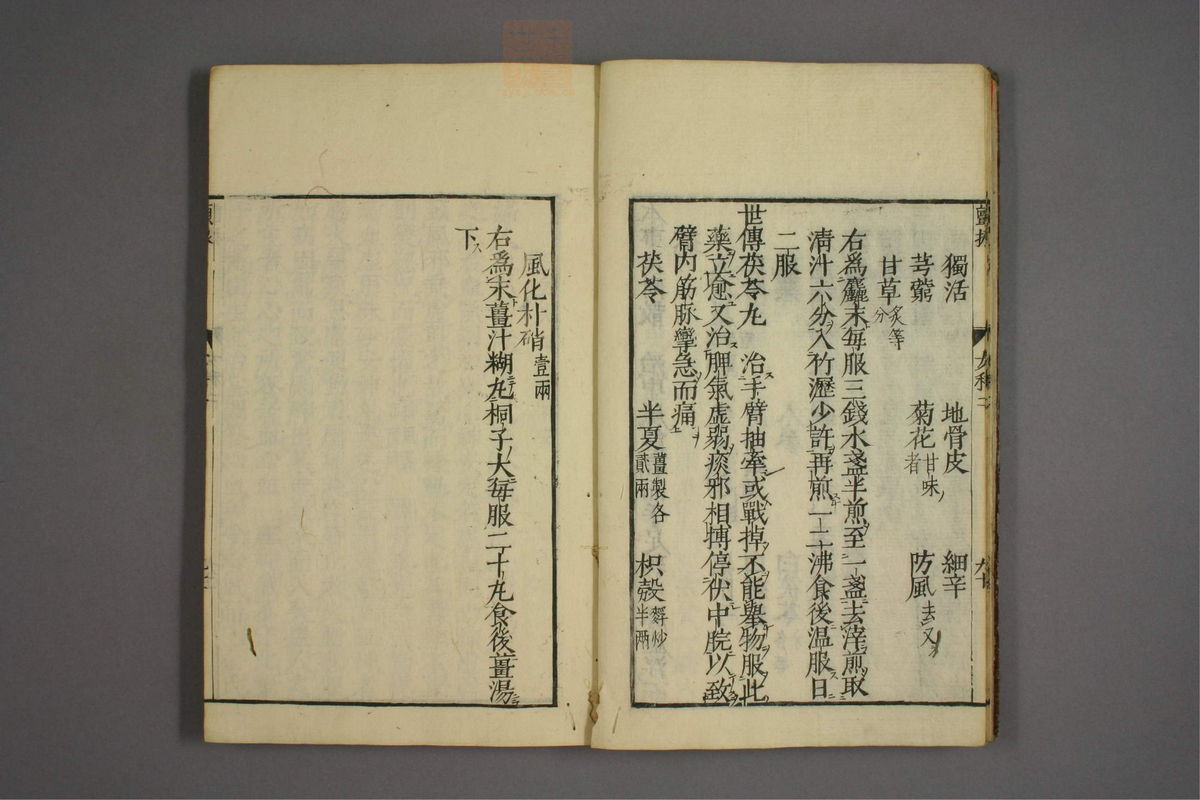 獨活　地骨皮　細辛
芎藭　菊花甘味者　防風去叉
甘草炙等分
右爲麤末每服三錢水盞半煎至一盞去滓煎取
清汁六分入竹瀝少許再煎一二沸食後温服日
二服
世傳茯苓丸　治手臂抽牽或戰掉不能擧物服此
藥立愈又治脾氣虛弱痰邪相搏停伏中脘以致
臂內筋脉攣急而痛
茯苓　半夏薑製各貳兩　枳殼麩炒半兩
風化朴硝壹兩
右爲末薑汁糊丸桐子大每服二十丸食後薑湯
下